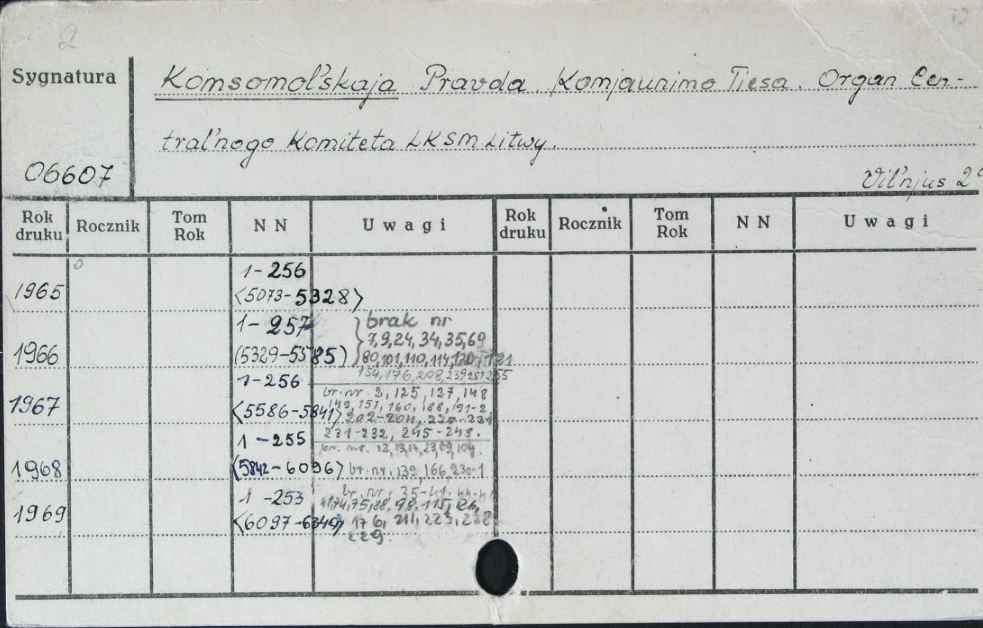 2
Sygnatura
Komsomol'skaja Pravda. Komjaunimo Tiesa. Organ Cen-
tral'nogo Komiteta LKSM Litwy.
06607
Vil'njus 2°
Rok druku Rocznik Tom Rok N N Uwagi Rok druku Rocznik Tom Rok N N Uwagi
1965
1-256
<5073-5328>
1966
1-257
(5329-5585)
brak nr
7,9,24, 34,35,69
80,101,110,114,120, 121
154,176,208,239
1967
1-256
<5586-5841>
br. nr. 3, 125, 127, 148
149, 151, 160, 188, 191-2
202-204,
231-232, 245-248.
1968
1-255
(5842-6096>
br. nr. 12,13,14,
br. nr. 139, 166, 230-1
1969
1-253
<6097-6349>
br. nr. 35-41,
74,75,
176, 211, 223, 228
229.